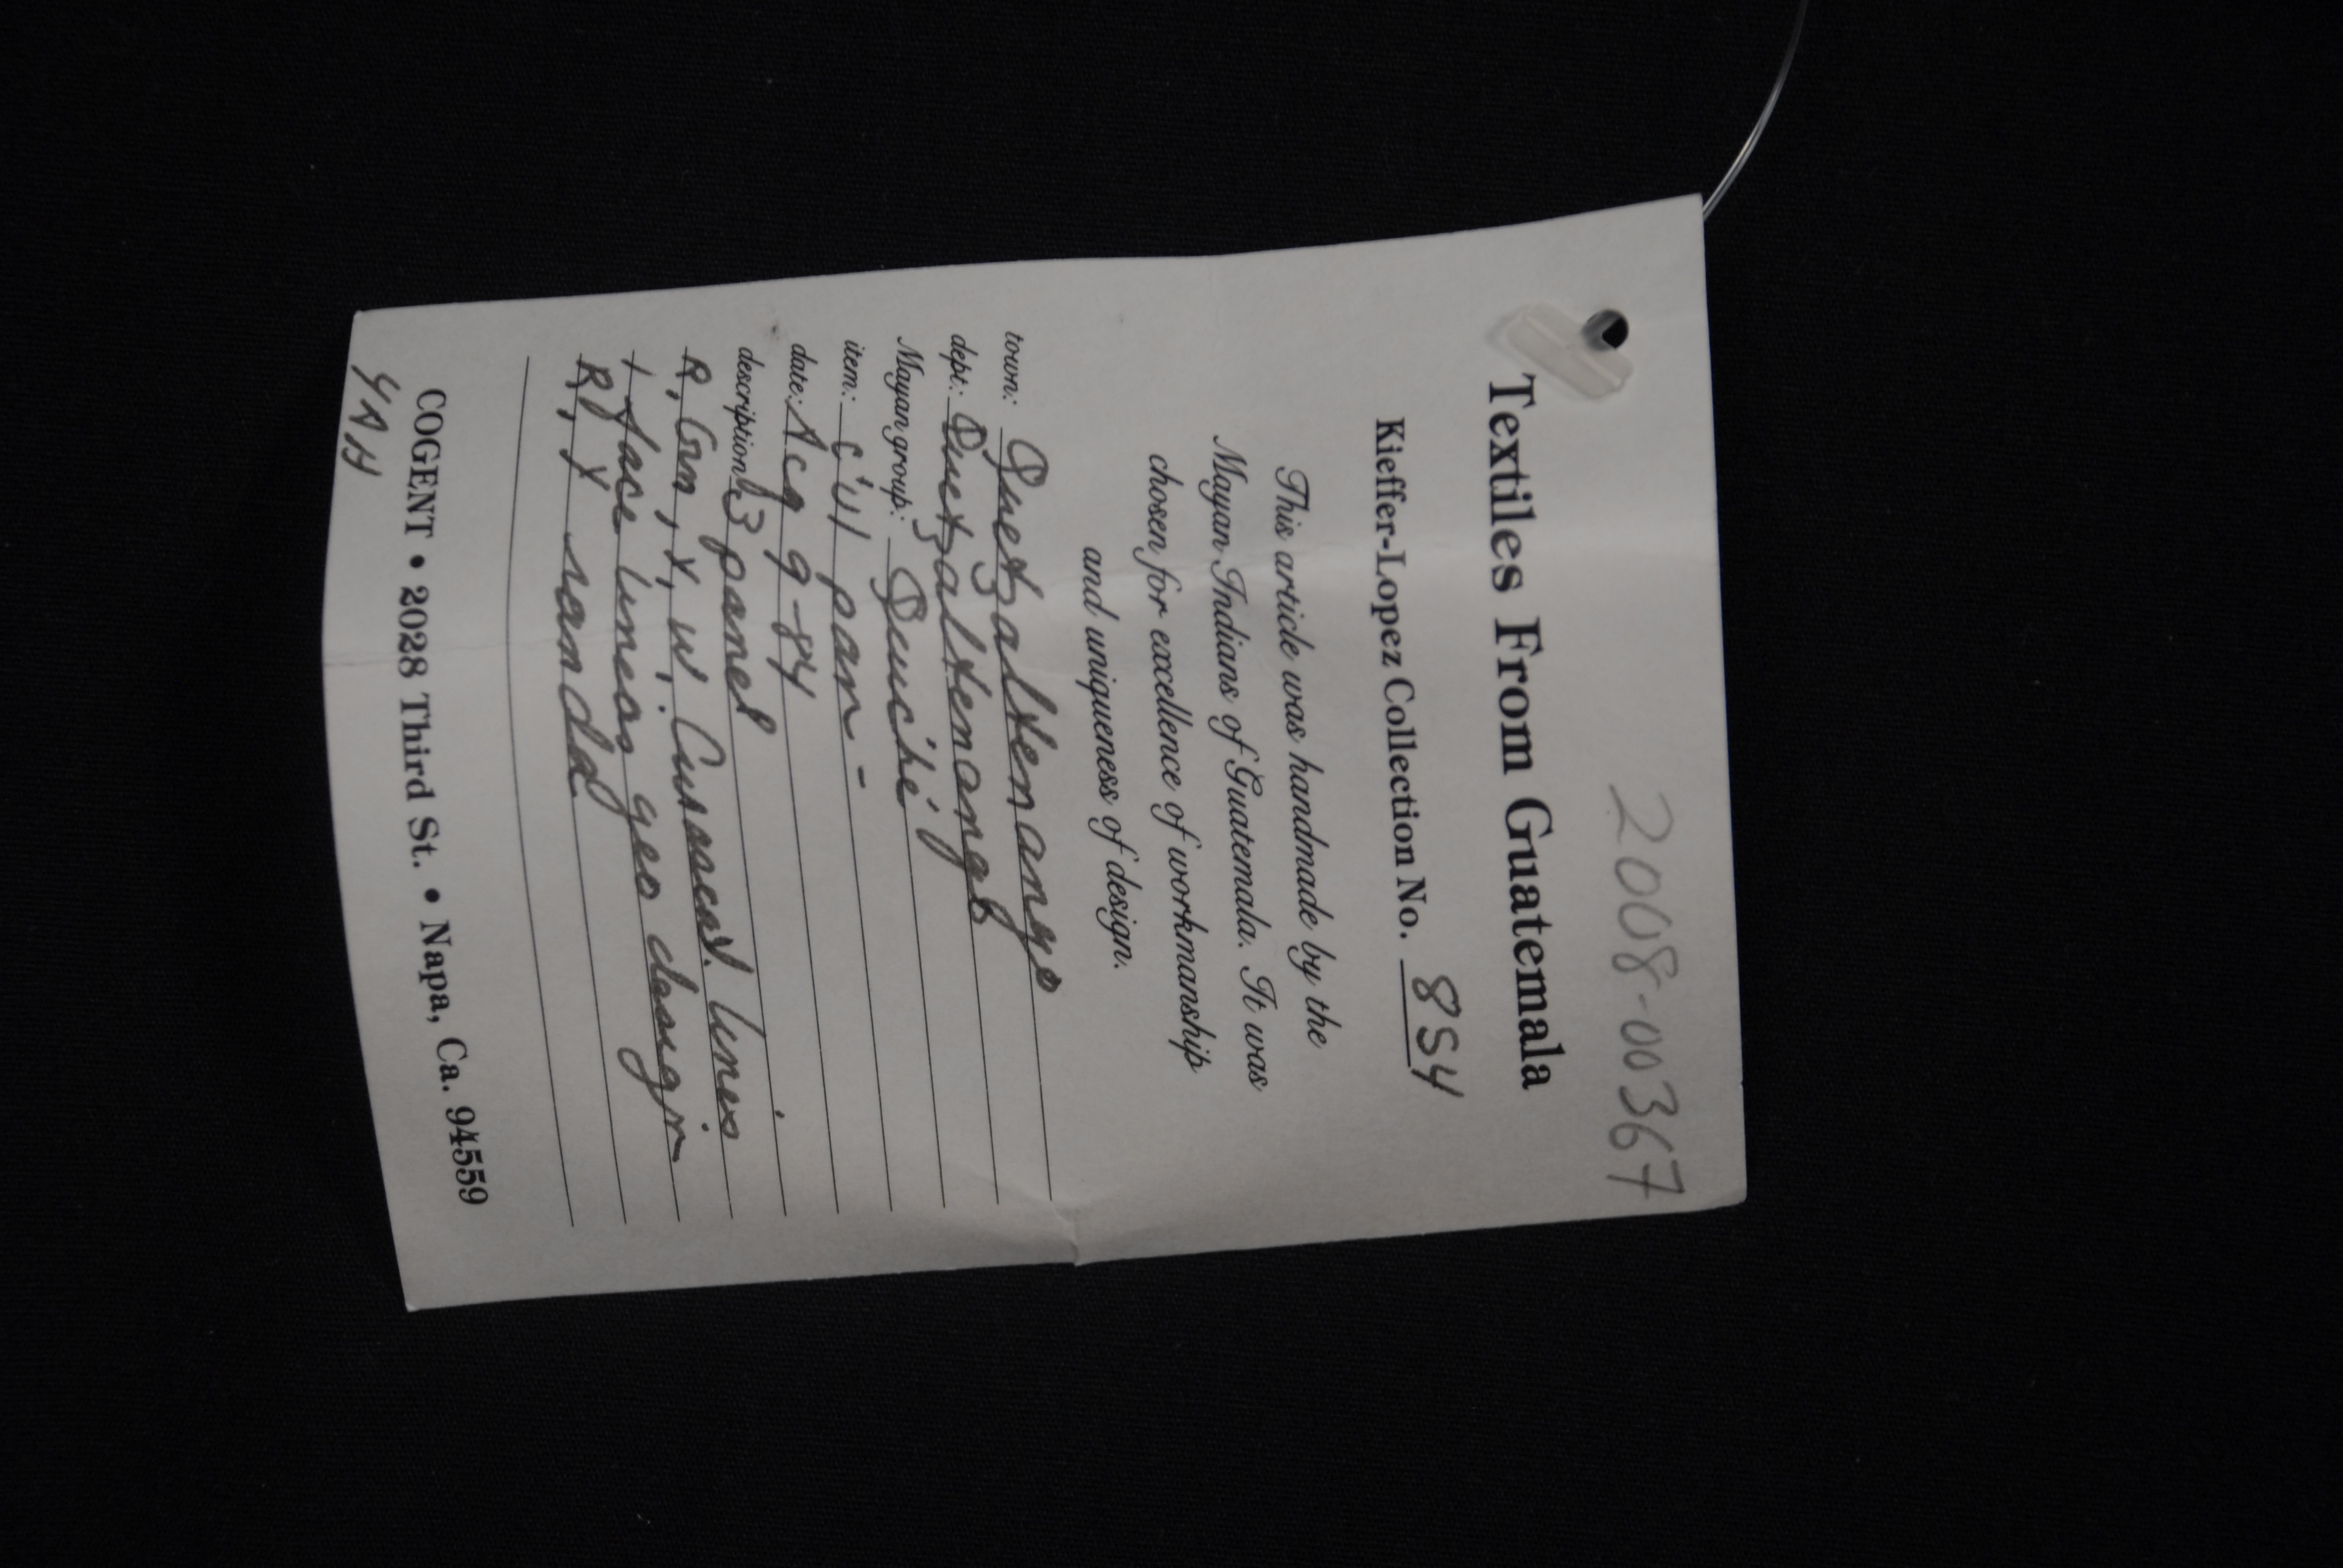 2008-00367
Textiles From Guatemala
Kieffer-Lopez Collection No. 854
This article was handmade by the
Mayan Indians of Guatemala. It was
chosen for excellence of workmanship
and uniqueness of design.
town: Quetzaltenango
dept: Quetzaltenango
Mayan group: Quiché
item: c'ul pan -
date: Acq 9-84
description: 3 panel
R, Grn, Y, W. lines
1 face lineas geo design
R, Y randa
COGENT • 2028 Third St. • Napa, Ca. 94559
YAH